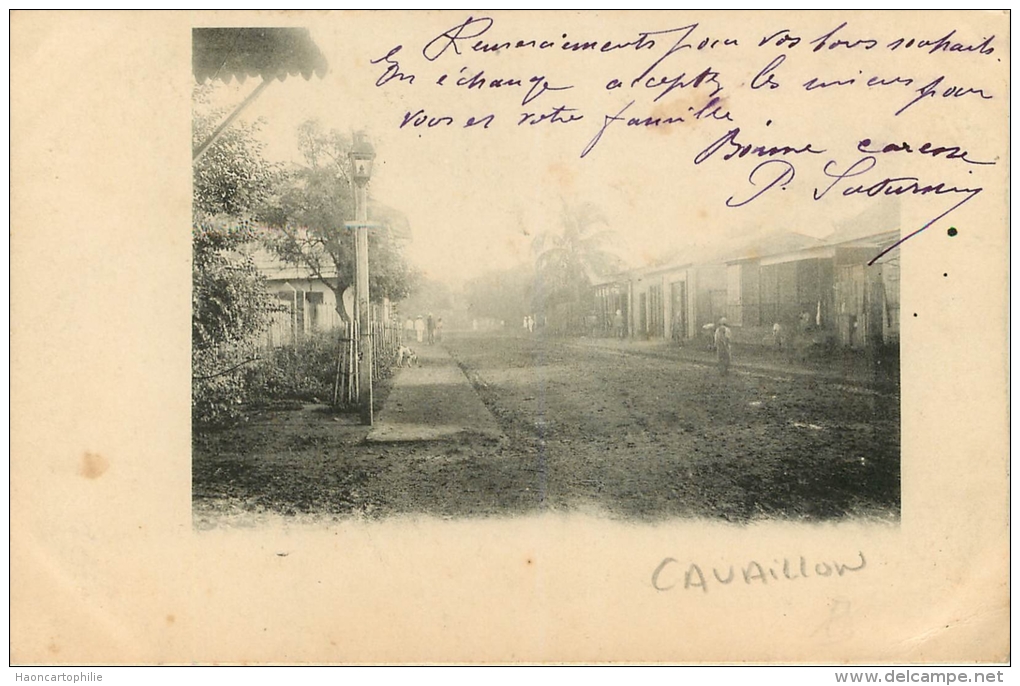 Remerciements pour vos bons souhaits.
En échange acceptez les miens pour
vous et votre famille.
Bonne caresse
P. Saturnin
CAVAILLON
Haoncartophilie
www.delcampe.net